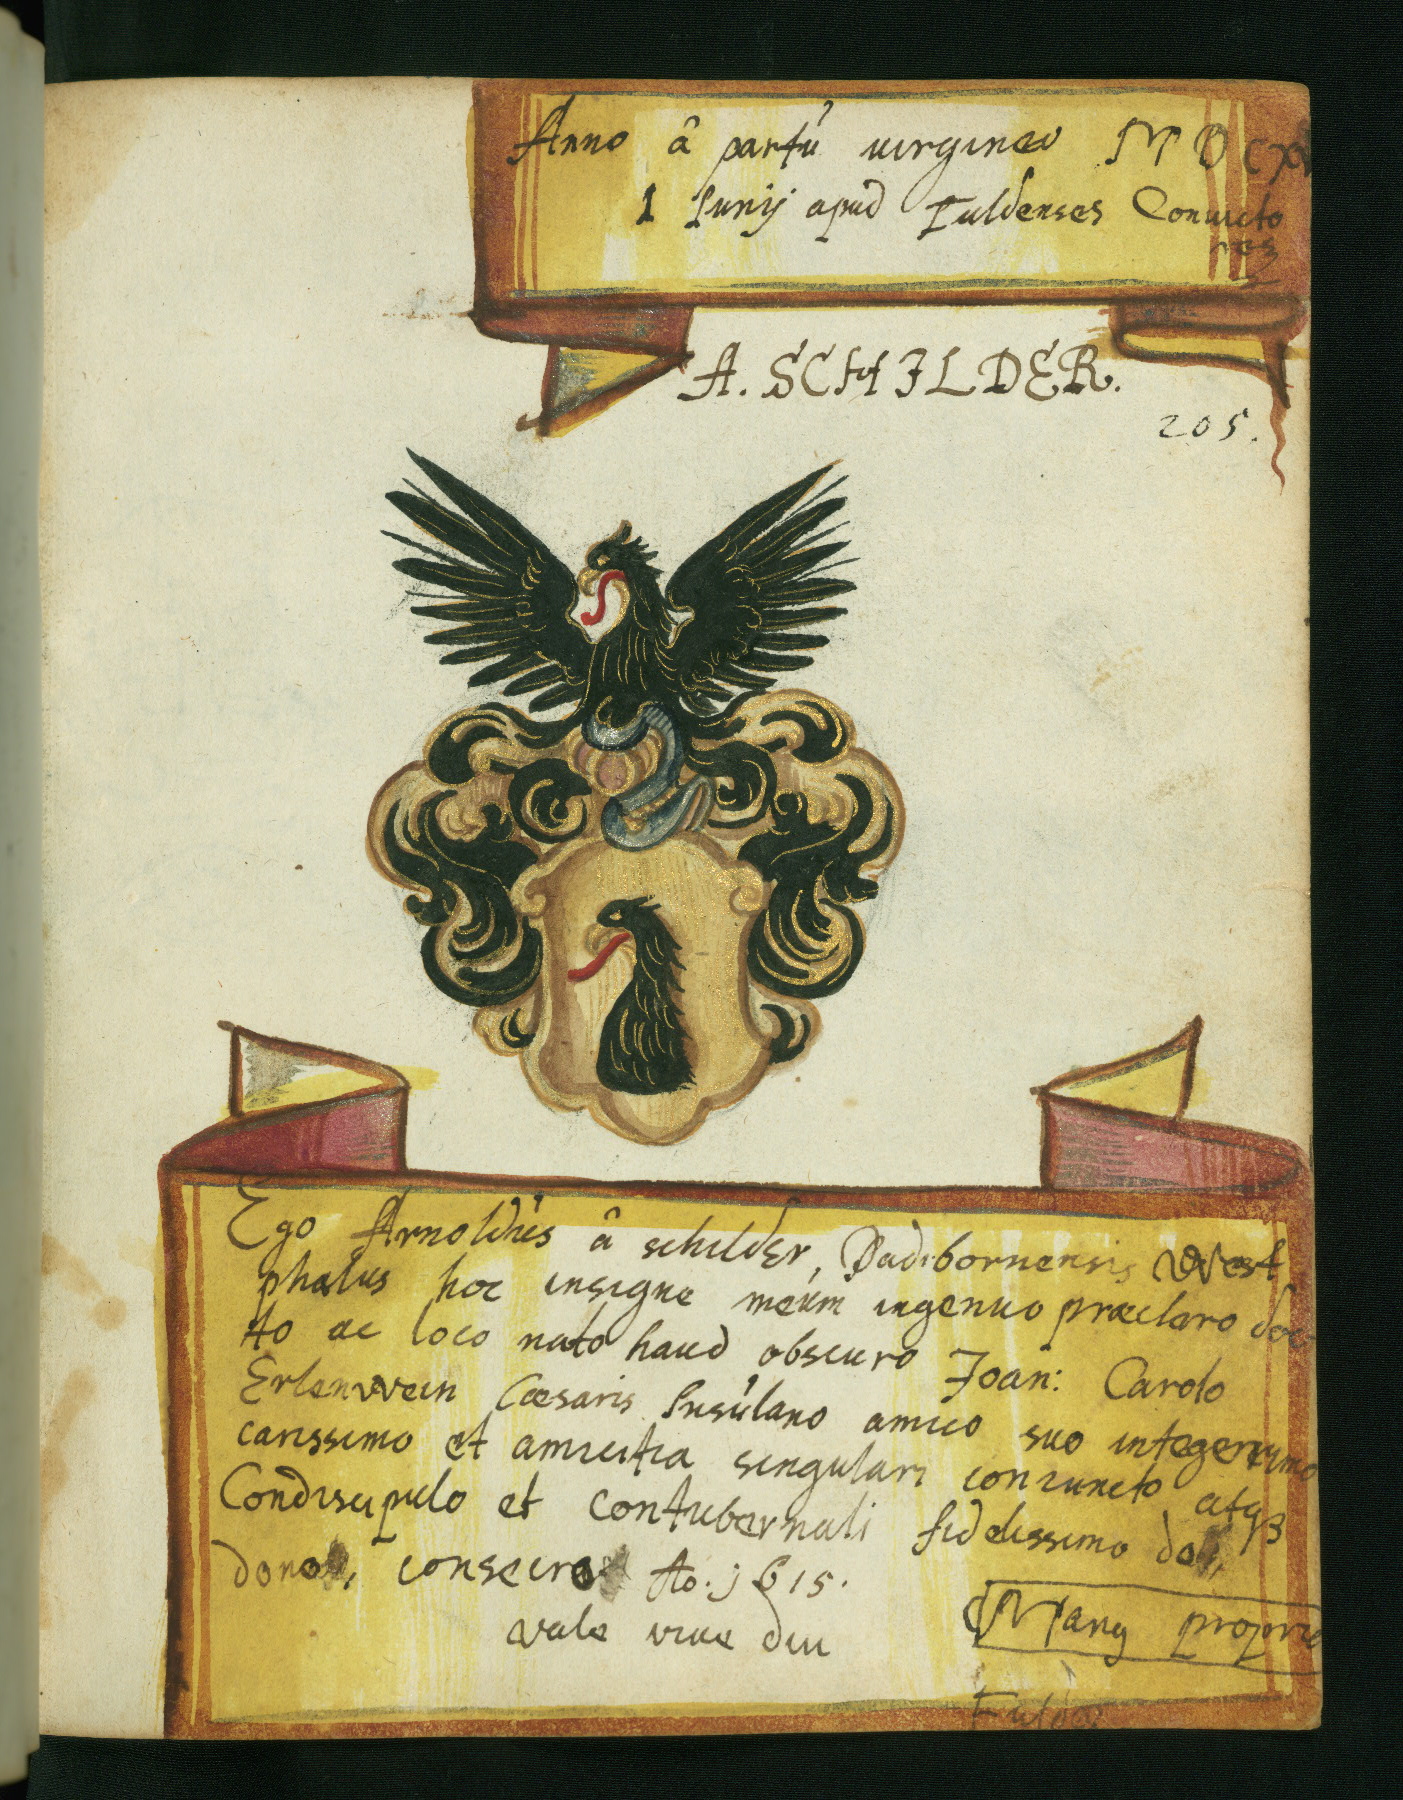 Anno â partu virgineo MDCXV
1 Junij apud Fuldenses Convicto
res
A. SCHILDER.
205.
Ego Arnoldus â schilder, Padibornensis West
phalus hoc insigne meum ingenuo præclaro doc
to ac loco nato haud obscuro Joan: Carolo
Erlenwein Cæsaris Insulano amico suo integerrimo
carissimo et amicitia singulari coniuncto atqꝫ
Condiscipulo et contubernali fidelissimo do,
dono, consecro Ao. 1615.
vale vive diu
Manu propria
Fuldæ